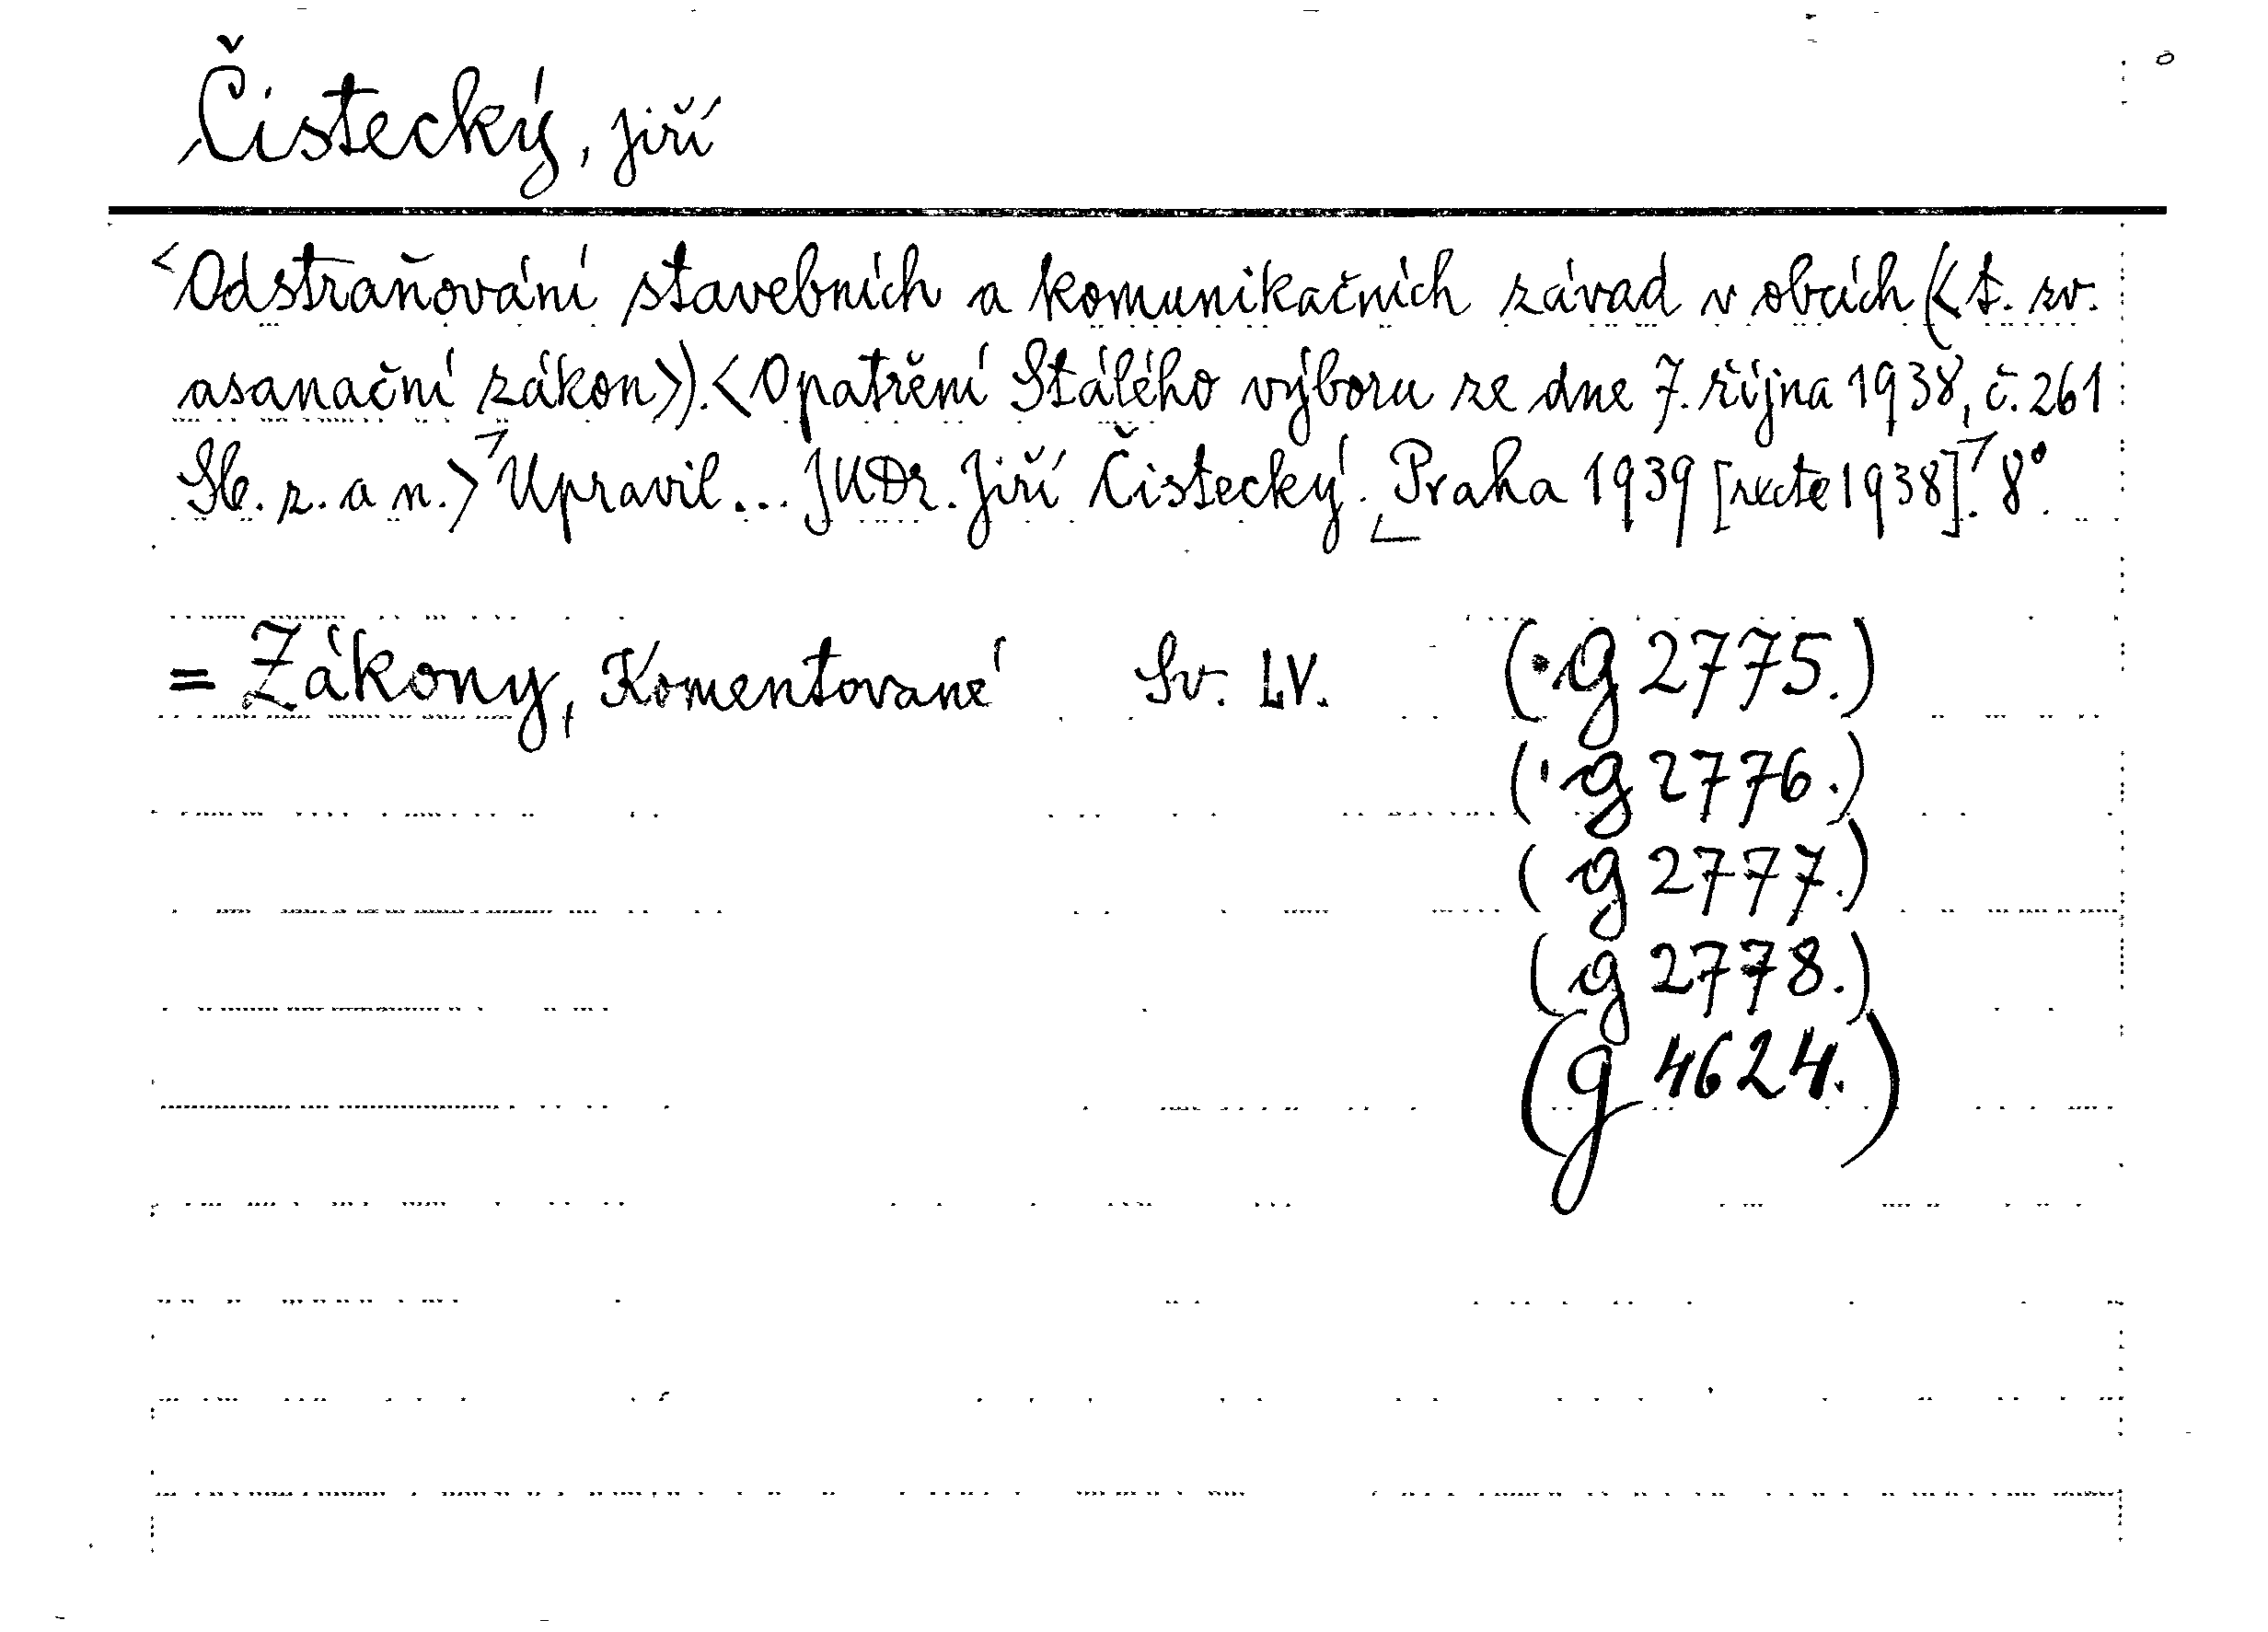 Čistecký, Jiří
<Odstraňování stavebních a komunikačních závad v obcích (<t. zv.
asanační zákon>). <Opatření Stálého výboru ze dne 7. října 1938, č. 261
Sb. z. a n.> Upravil... JUDr. Jiří Čistecký. Praha 1939 [recte 1938]. 8°.
= Zákony, Komentované Sv. LV. (· g 2775.)
(' g 2776.)
( g 2777.)
( g 2778.)
(g 4624.)